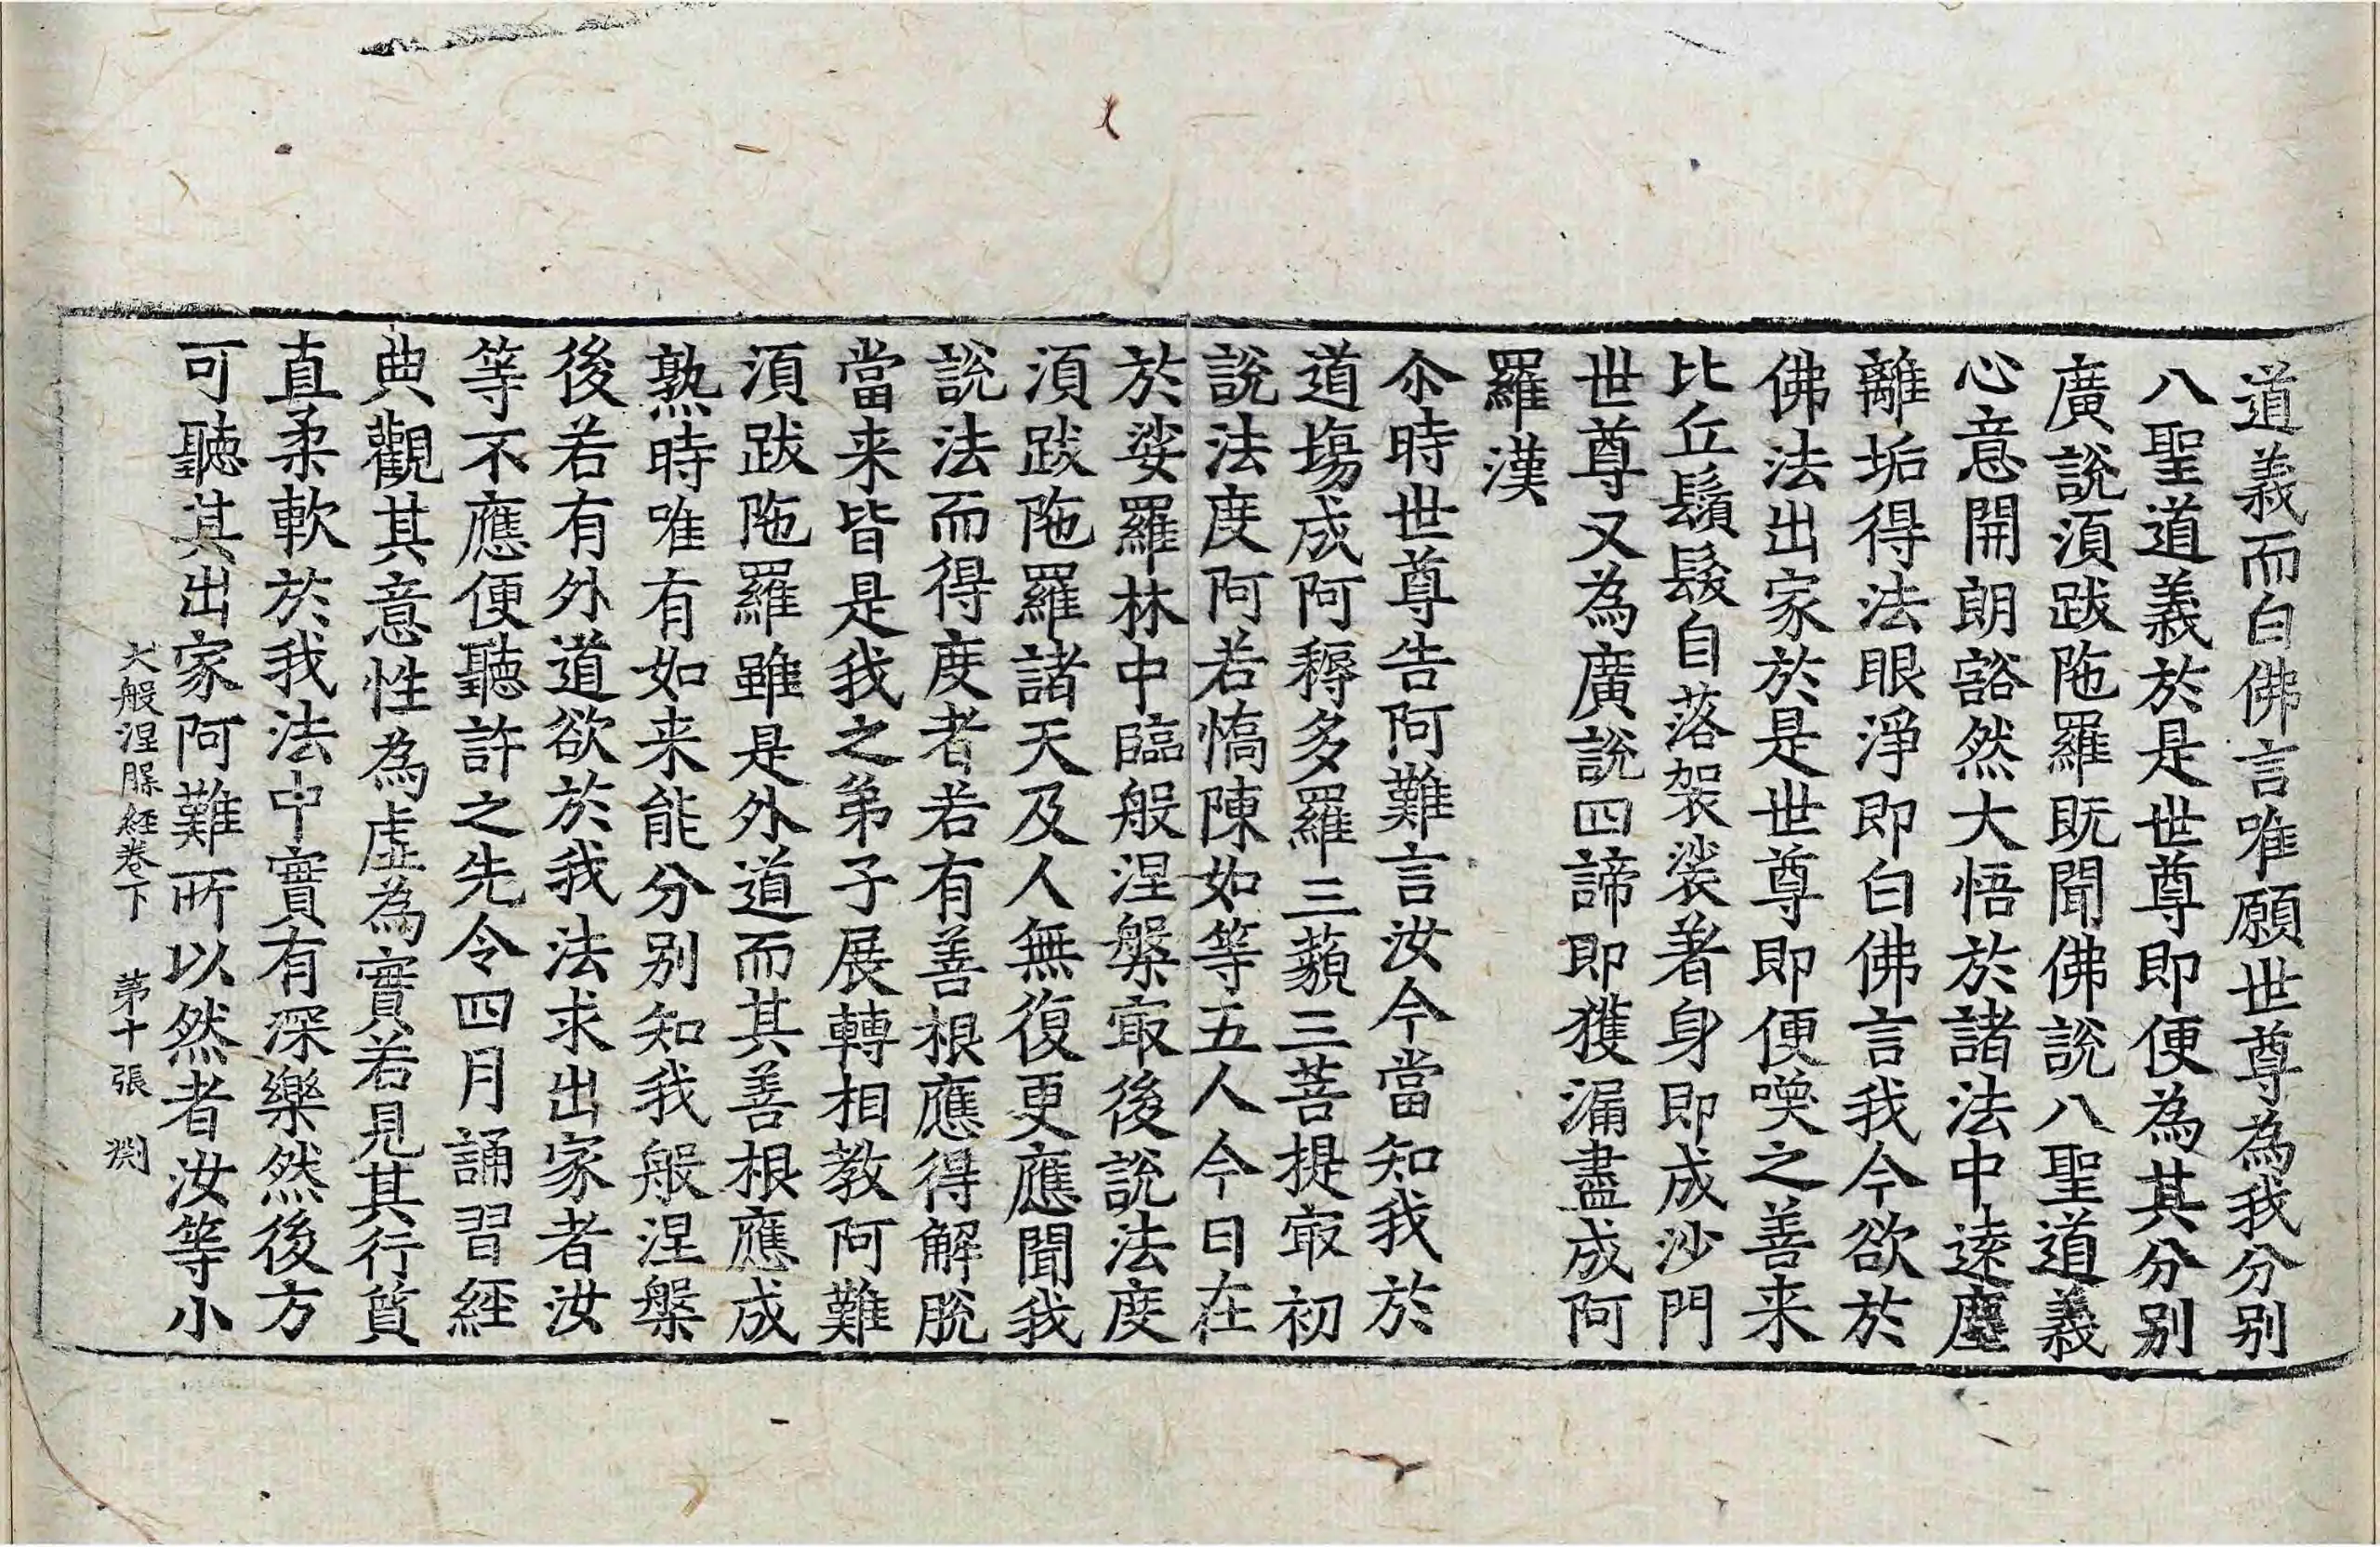 道義而白佛言唯願世尊為我分别
八聖道義於是世尊即便為其分别
廣說湏跋陁羅既聞佛說八聖道義
心意開朗豁然大悟於諸法中逺塵
離垢得法眼淨即白佛言我今欲於
佛法出家於是世尊即便喚之善来
比丘鬚髮自落袈裟著身即成沙門
世尊又為廣說四諦即獲漏盡成阿
羅漢
尒時世尊告阿難言汝今當知我於
道塲成阿耨多羅三藐三菩提㝡初
說法度阿若憍陳如等五人今日在
於娑羅林中臨般涅槃㝡後說法度
湏跋陁羅諸天及人無復更應聞我
說法而得度者若有善根應得解脫
當来皆是我之弟子展轉相教阿難
湏跋陁羅雖是外道而其善根應成
熟時唯有如来能分别知我般涅槃
後若有外道欲於我法求出家者汝
等不應便聽許之先令四月誦習經
典觀其意性為虛為實若見其行質
直柔軟於我法中實有深樂然後方
可聽其出家阿難所以然者汝等小
大般涅槃経卷下 第十張 渕